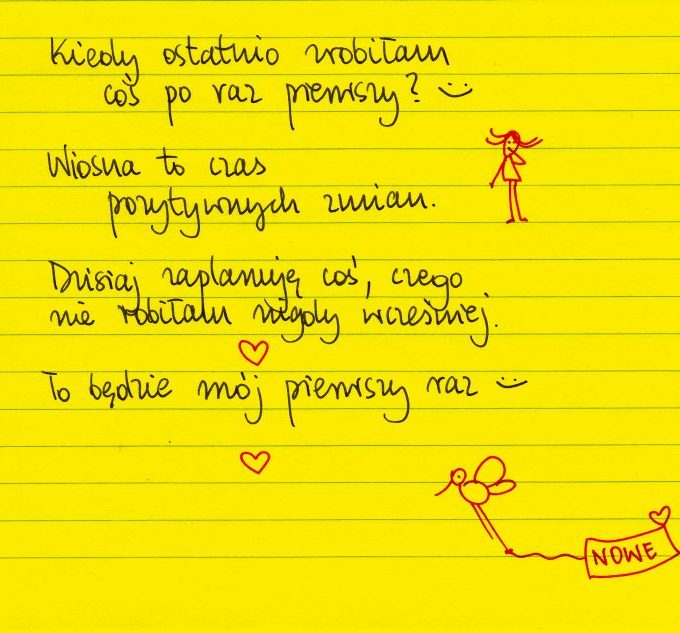 Kiedy ostatnio zrobiłam
coś po raz pierwszy? :)
Wiosna to czas
pozytywnych zmian.
Dzisiaj zaplanuję coś, czego
nie robiłam nigdy wcześniej.
To będzie mój pierwszy raz :)
NOWE